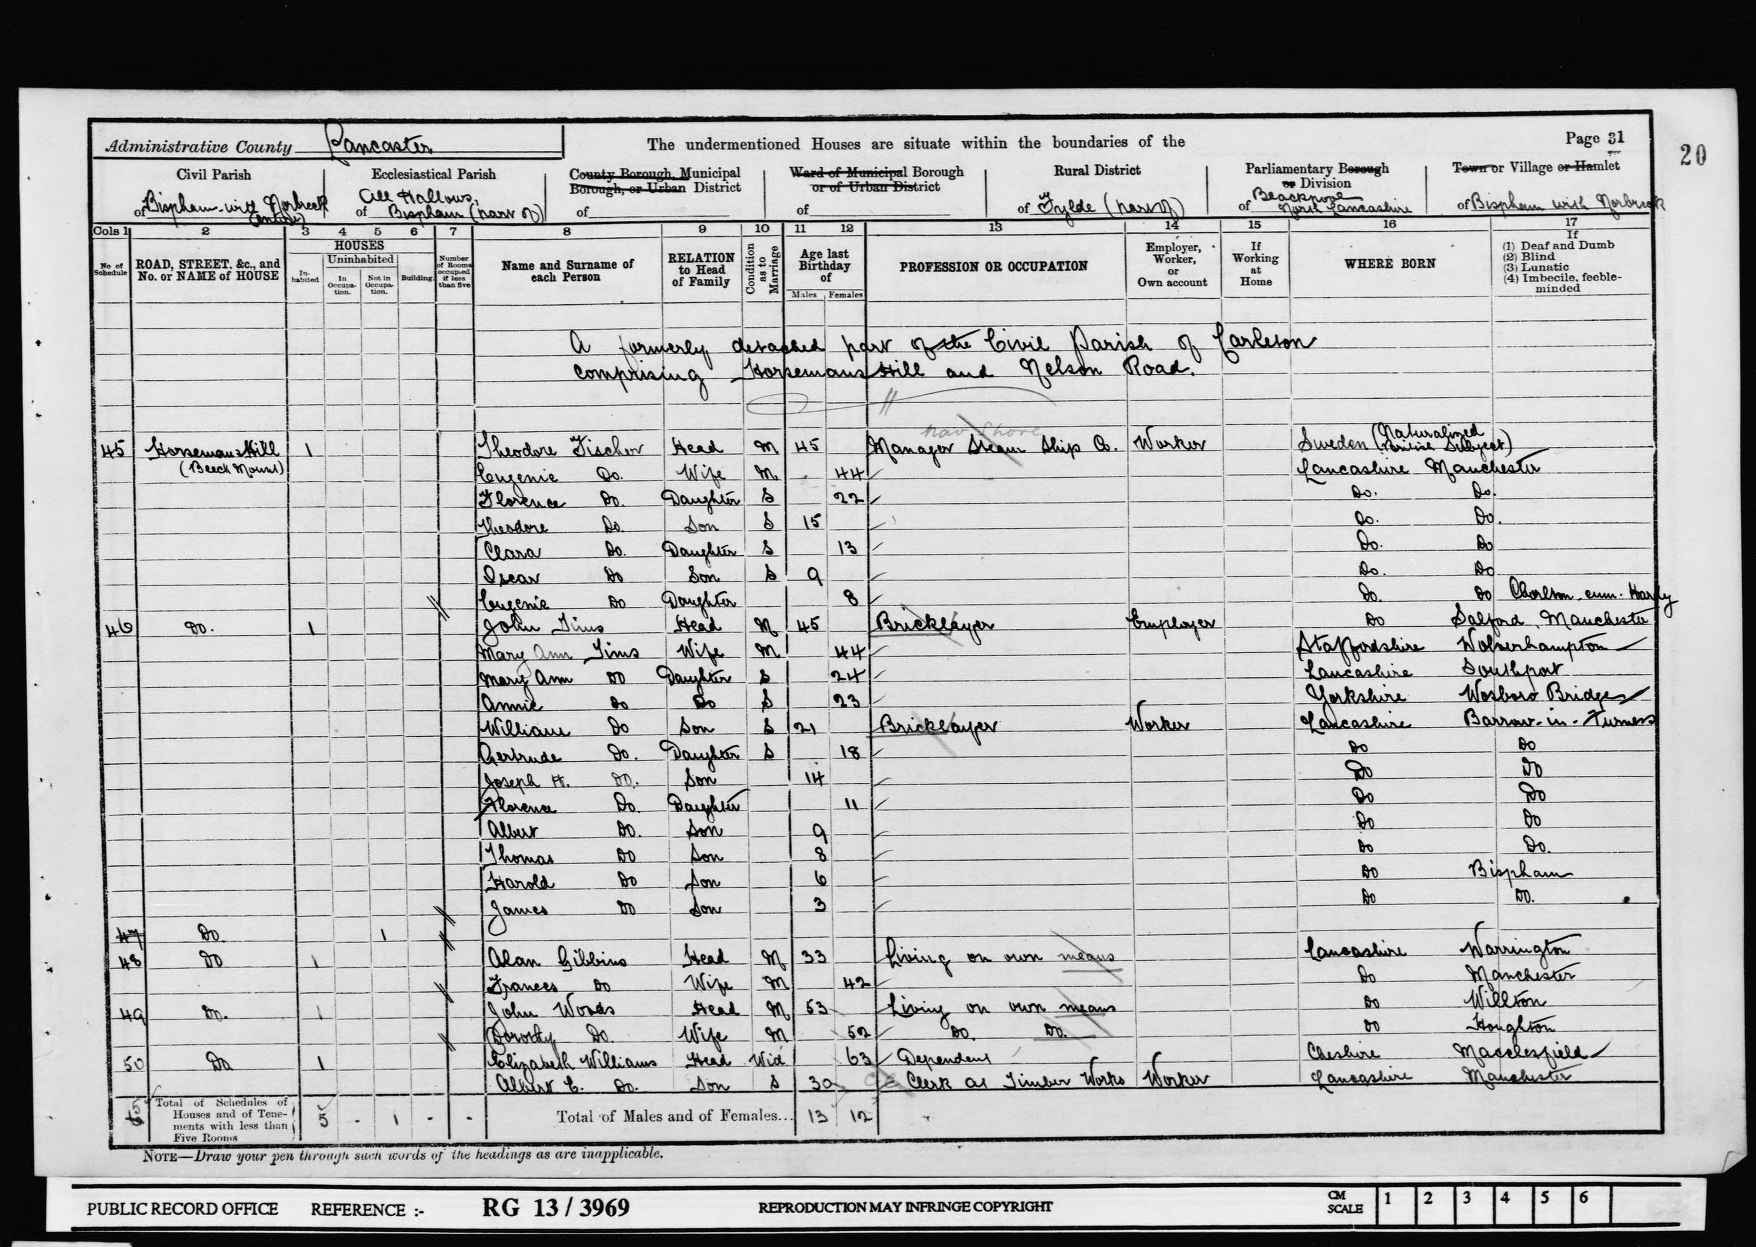 Administrative County Lancaster The undermentioned Houses are situate within the boundaries of the Page 31
20
Civil Parish Ecclesiastical Parish County Borough, Municipal Borough, or Urban District Ward of Municipal Borough or of Urban District Rural District Parliamentary Borough or Division Town or Village or Hamlet
of Bispham with Norbreck (entire) of All Hallows, Bispham (part of) of of of Fylde (part of) of Blackpool North Lancashire of Bispham with Norbreck
Cols 1 2 3 4 5 6 7 8 9 10 11 12 13 14 15 16 17
No. of Schedule ROAD, STREET, &c., and No. or NAME of HOUSE HOUSES Inhabited Uninhabited In Occupation. Not in Occupation. Building Number of Rooms occupied if less than five Name and Surname of each Person RELATION to Head of Family Condition as to Marriage Age last Birthday of Males Females PROFESSION OR OCCUPATION Employer, Worker, or Own account If Working at Home WHERE BORN If (1) Deaf and Dumb (2) Blind (3) Lunatic (4) Imbecile, feeble-minded
A formerly detached part of the Civil Parish of Carleton
comprising Horsemans Hill and Nelson Road.
nav Shore
45 Horsemans Hill (Beech Mount) 1 Theodore Fischer Head M 45 Manager Steam Ship Co. Worker Sweden (Naturalized British Subject)
Eugenie Do. Wife M 44 Lancashire Manchester
Florence Do. Daughter S 22 Do. Do.
Theodore Do. Son S 15 Do. Do.
Clara Do. Daughter S 13 Do. Do
Oscar Do Son S 9 Do. Do
Eugenie Do Daughter 8 Do. Do Chorlton-cum-Hardy
46 Do. 1 John Tims Head M 45 Bricklayer Employer Do Salford, Manchester
Mary Ann Tims Wife M 44 Staffordshire Wolverhampton
Mary Ann Do Daughter S 24 Lancashire Southport
Annie Do Do S 23 Yorkshire Worsboro Bridge
William Do Son S 21 Bricklayer Worker Lancashire Barrow-in-Furness
Gertrude Do. Daughter S 18 Do Do
Joseph H. Do. Son 14 Do Do
Florence Do Daughter 11 Do Do
Albert Do. Son 9 Do Do
Thomas Do Son 8 Do Do.
Harold Do Son 6 Do Bispham
James Do Son 3 Do Do.
47 Do. 1
48 Do 1 Alan Gibbins Head M 33 Living on own means Lancashire Warrington
Frances Do Wife M 42 Do Manchester
49 Do. 1 John Woods Head M 53 Living on own means Do Willton
Dorothy Do. Wife M 52 Do. Do. Do Houghton
50 Do 1 Elizabeth Williams Head Wid 63 Dependent Cheshire Macclesfield
Albert E. Do. Son S 30 Clerk at Timber Works Worker Lancashire Manchester
5 Total of Schedules of Houses and of Tenements with less than Five Rooms 5 - 1 - - Total of Males and of Females... 13 12
NOTE—Draw your pen through such words of the headings as are inapplicable.
PUBLIC RECORD OFFICE REFERENCE :- RG 13 / 3969 REPRODUCTION MAY INFRINGE COPYRIGHT CM SCALE 1 2 3 4 5 6